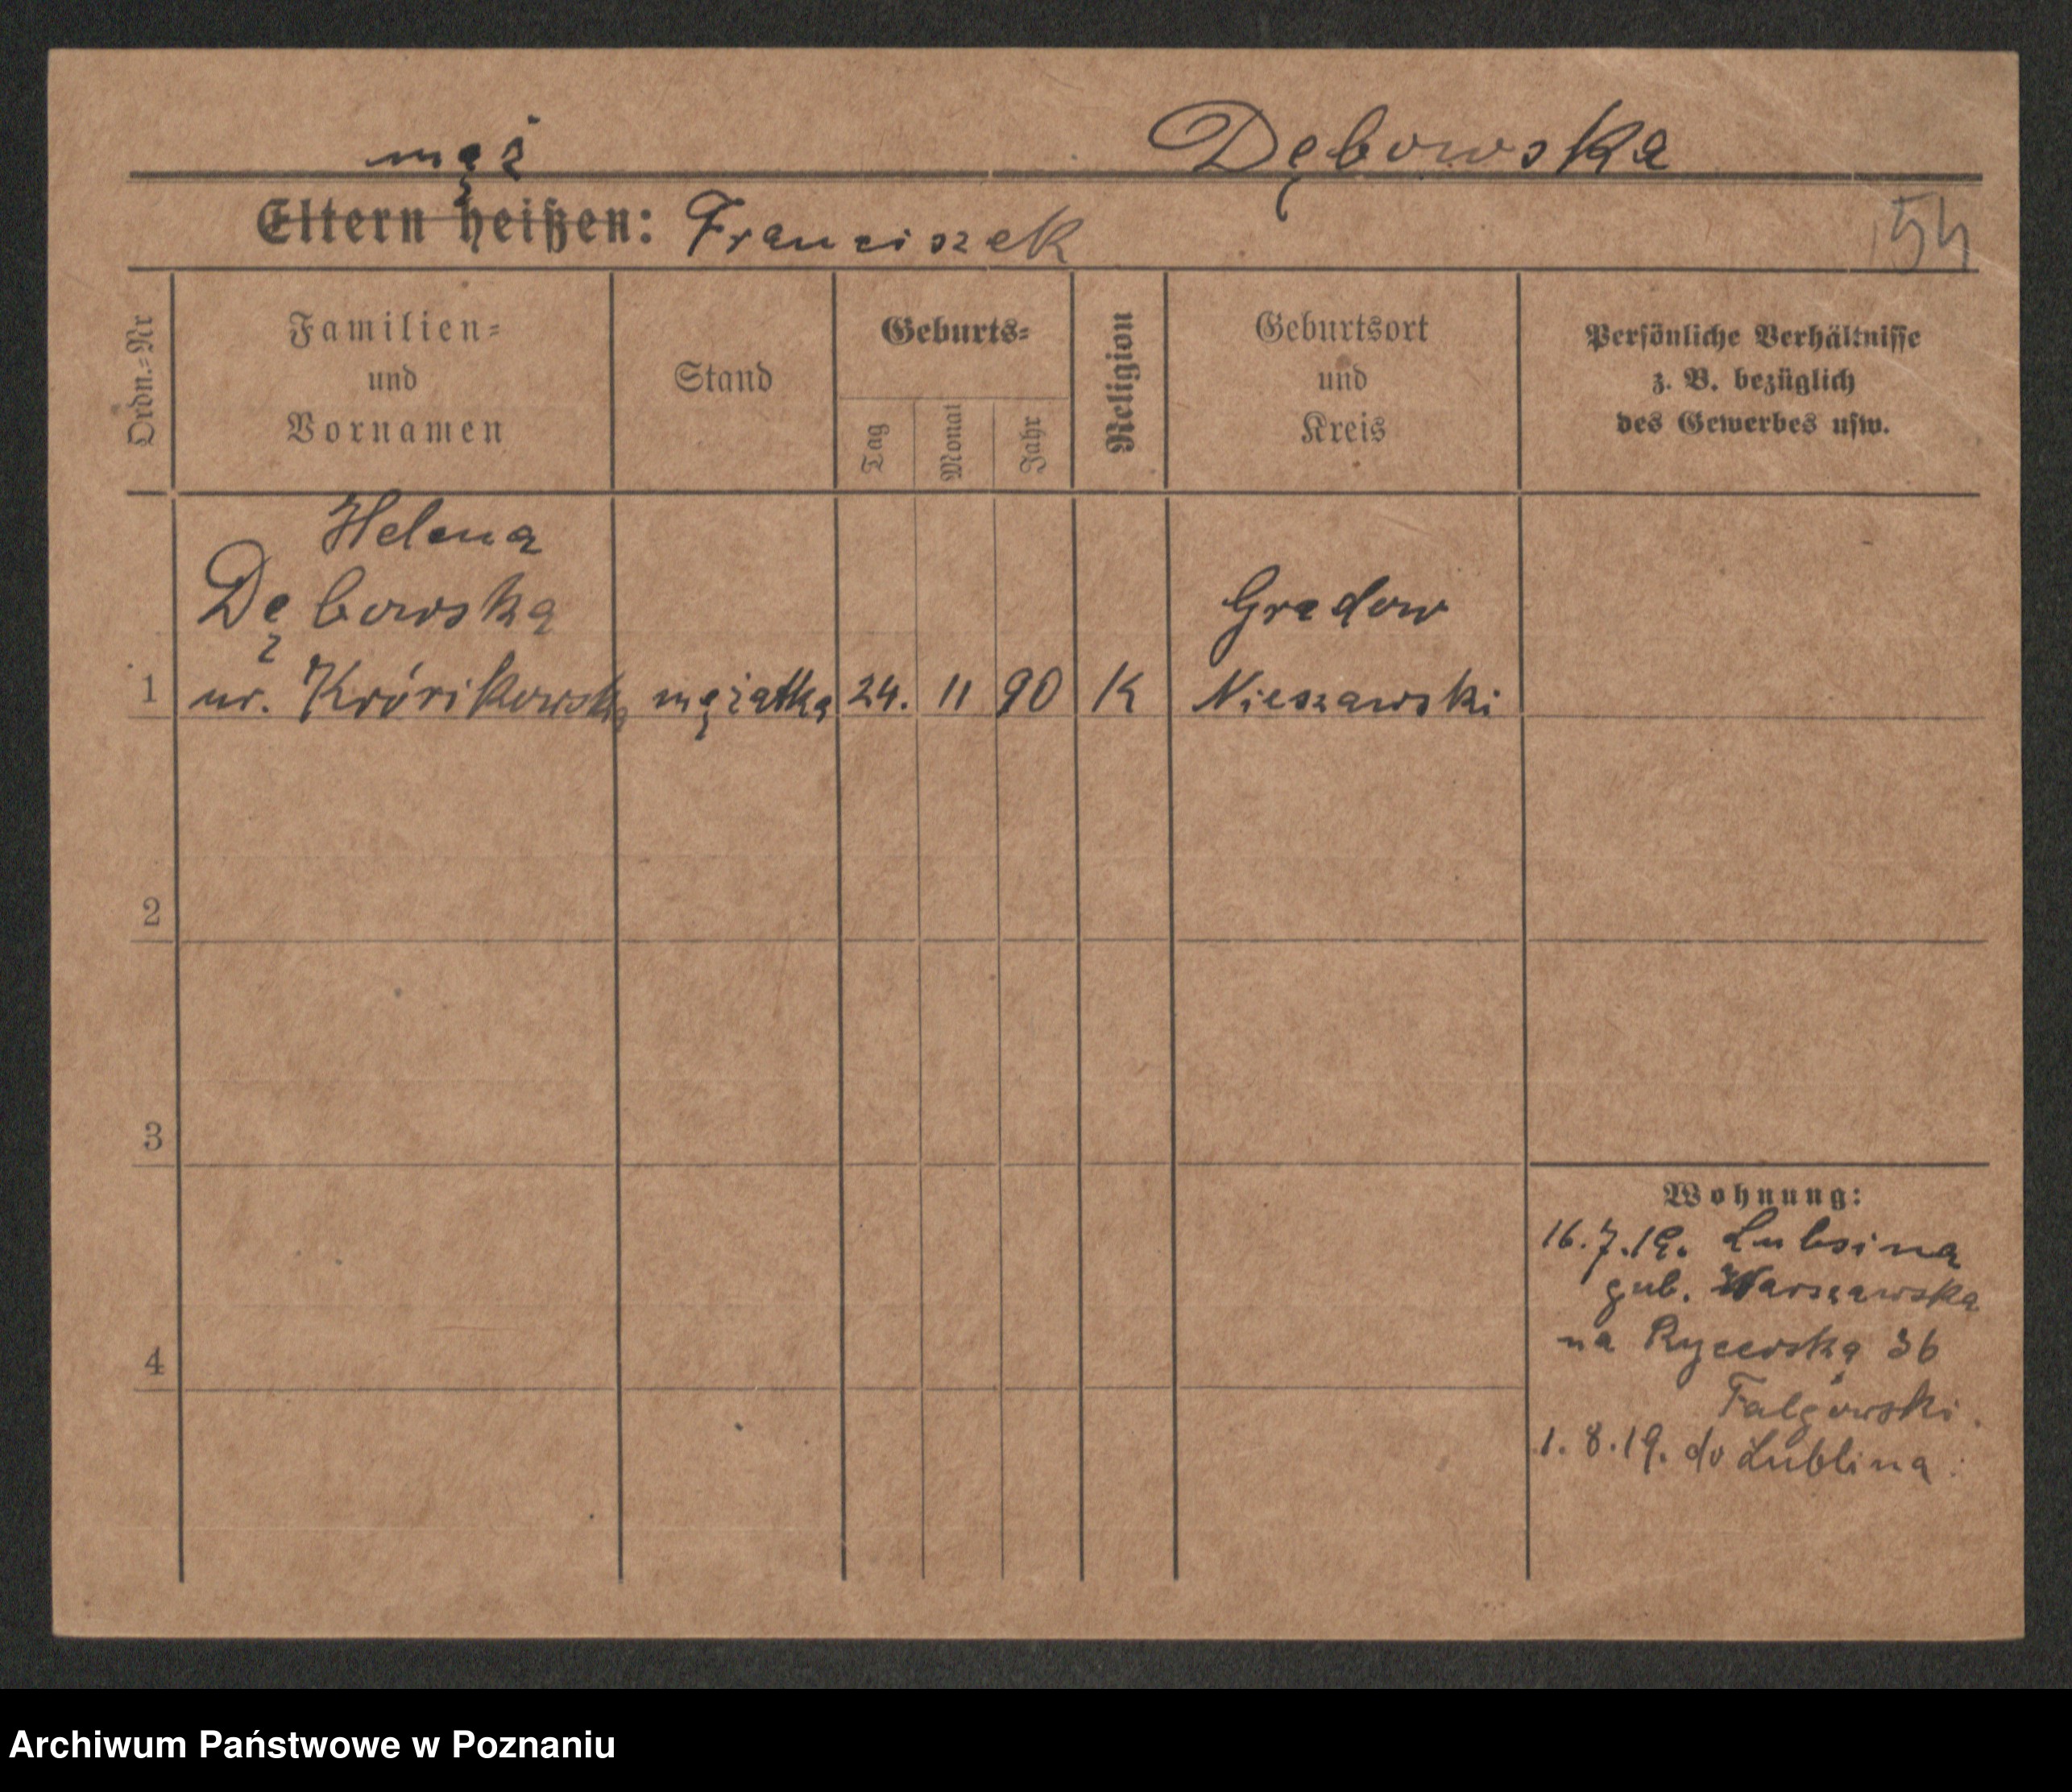 mąż Dębowska
Eltern heißen: Franciszek
154
Ordn.=Nr
Familien=
und
Vornamen
Stand
Geburts=
Tag
Monat
Jahr
Religion
Geburtsort
und
Kreis
Persönliche Verhältnisse
z. B. bezüglich
des Gewerbes usw.
Helena
Dębowska Gradow
1 ur. mężatka 24. 11 90 K Nieszawski
2
3
4
Wohnung:
16.7.19. Lubsina
gub. Warszawska
na Rycerską 36
1.8.19. do Lublina.
Archiwum Państwowe w Poznaniu